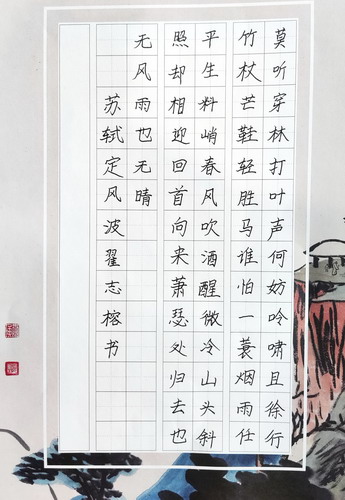 莫听穿林打叶声何妨吟啸且徐行
竹杖芒鞋轻胜马谁怕一蓑烟雨任
平生料峭春风吹酒醒微冷山头斜
照却相迎回首向来萧瑟处归去也
无风雨也无晴
苏轼定风波翟志榕书